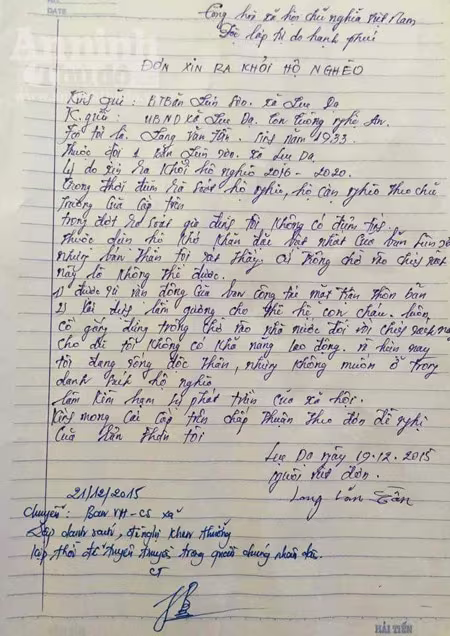 DATE
An ninh
Thủ đô
Cộng hòa xã hội chủ nghĩa Việt Nam
Độc lập tự do hạnh phúc
ĐƠN XIN RA KHỎI HỘ NGHÈO
Kính gửi: BTBản Tân xã Lưu Dạ
K. gửi: UBND xã Lưu Dạ, Con Cuông Nghệ An.
Tên tôi là. Văn Tân. Sinh năm 1933.
Thuộc đội 1 bản xã Lưu Dạ.
Lý do xin ra khỏi hộ nghèo 2016 - 2020.
trong thời điểm rà soát hộ nghèo, hộ cận nghèo theo chủ
trương của cấp trên
trong đợt rà soát gia đình tôi không có điểm
thuộc diện hộ khó khăn đặc biệt nhất của bản
nhưng bản thân tôi xét thấy. trông chờ vào
này là không thể được.
1) được sự vận động của ban công tác mặt trận thôn bản
2) làm gương cho thế hệ con cháu. luôn
cố gắng đừng trông chờ vào nhà nước đối với
cho dù tôi không có khả năng lao động. hiện nay
tôi đang sống độc thân, nhưng không muốn ở trong
danh sách hộ nghèo
làm kìm hạm sự phát triển của xã hội.
Kính mong các cấp trên chấp thuận theo đơn đề nghị
của bản thân tôi
Lưu Dạ ngày 19.12.2015
người viết đơn.
Văn Tân
21/12/2015
Chuyển: Ban VH-CS xã
Lập danh sách, đề nghị khen thưởng
kịp thời để tuyên truyền trong quần chúng nhân dân.
CT
HẢI TIẾN